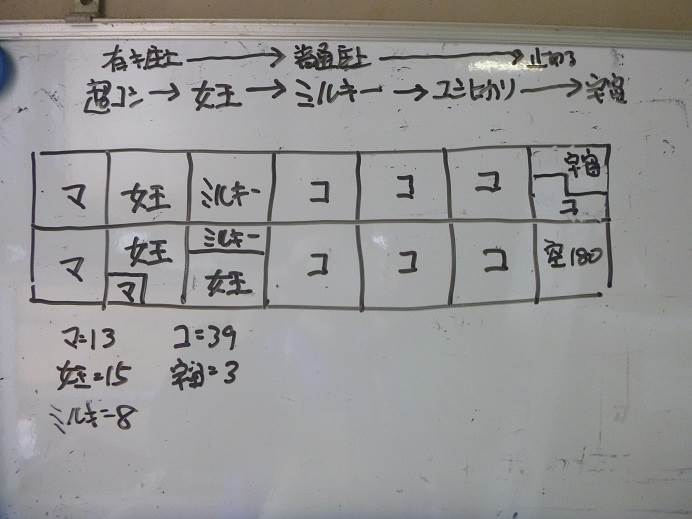 有キ床土→普通床土→止める
超コシ→女王→ミルキー→コシヒカリ→宇宙
マ 女王 ミルキー コ コ コ 宇宙 コ
マ 女王 マ ミルキー 女王 コ コ コ 空180
マ=13 コ=39
女王=15 宇宙=3
ミルキ=8